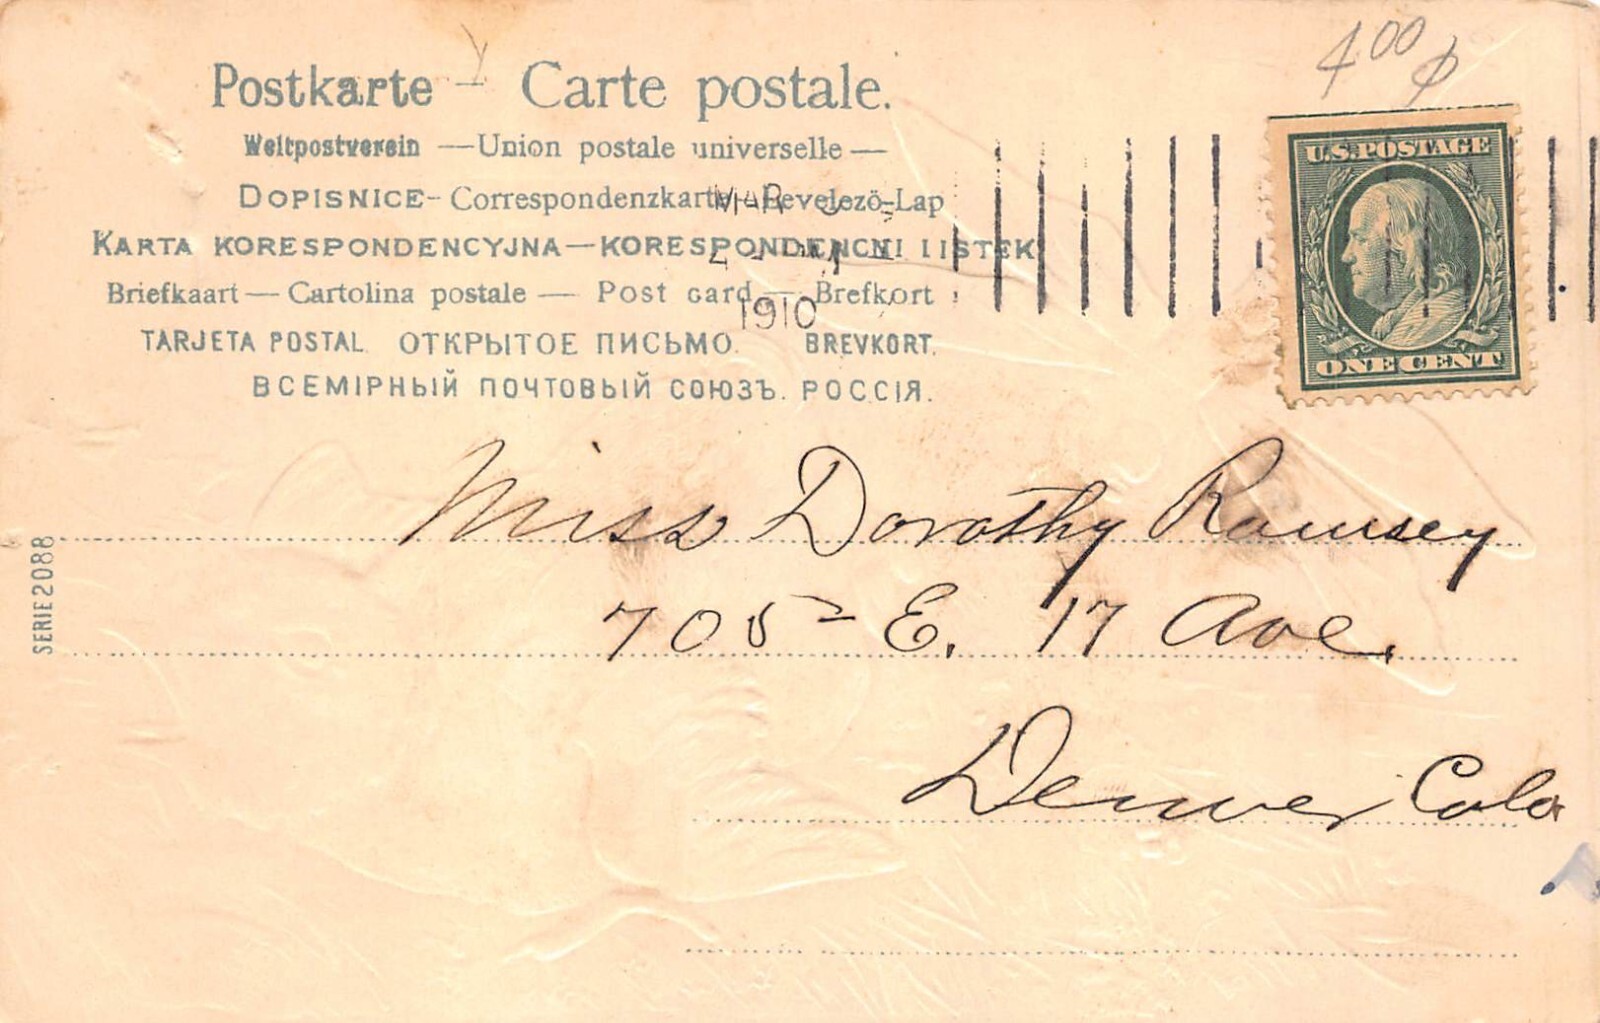 4.00
Postkarte - Carte postale.
Weltpostverein — Union postale universelle —
DOPISNICE - Correspondenzkarte - Levelezö-Lap
KARTA KORESPONDENCYJNA — KORESPONDENČNI LISTEK
Briefkaart — Cartolina postale — Post card — Brefkort
TARJETA POSTAL. ОТКРЫТОЕ ПИСЬМО. BREVKORT.
ВСЕМІРНЫЙ ПОЧТОВЫЙ СОЮЗЪ. РОССІЯ.
MAR
1910
U.S. POSTAGE
ONE CENT
Miss Dorothy Ramsey
705 - E. 17 Ave.
Denver Colo
SERIE 2088